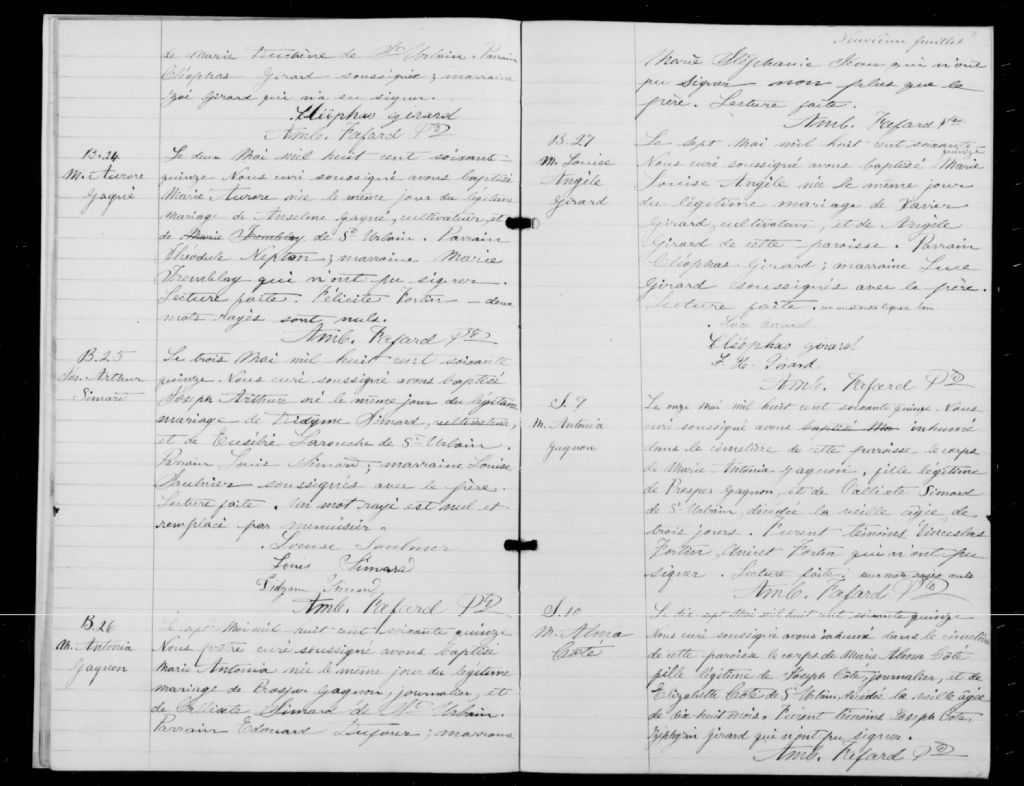 de Marie Duchène de St Urbain. Parrain
Cléophas Girard soussigné ; marraine
Zoé Girard qui n'a su signer.
Cléophas Girard
Amb. Fafard Ptre
B. 24
M. Aurore
Gagné
Le deux Mai mil huit cent soixante-
quinze Nous curé soussigné avons baptisé
Marie Aurore née le même jour du légitime
mariage de Anselme Gagné, cultivateur, et
de Marie Tremblay, de St Urbain. Parrain
Théodule Nepton ; marraine Marie
Tremblay qui n'ont pu signer.
Lecture faite. Félicité Fortin – deux
mots rayés sont nuls.
Amb. Fafard Ptre
B. 25
Jos. Arthur
Simard
Le trois Mai mil huit cent soixante
quinze Nous curé soussigné avons baptisé
Joseph Arthur né le même jour du légitime
mariage de Didyme Simard, cultivateur,
et de Eusébie Larouche de St Urbain.
Parrain Louis Simard ; marraine Louise
Saulnier soussignés avec le père.
Lecture faite. Un mot rayé est nul et
remplacé par menuisier.
Louise Saulnier
Louis Simard
Didyme Simard
Amb. Fafard Ptre
B. 26
M. Antonia
Gagnon
Le sept Mai mil huit cent soixante quinze
Nous prêtre curé soussigné avons baptisé
Marie Antonia née le même jour du légitime
mariage de Prosper Gagnon, journalier, et
de Callixte Simard de St Urbain.
Parrain Edouard Dufour ; marraine
Neuvième feuillet
Marie Stéphanie Jean qui n'ont
pu signer non plus que le
père. Lecture faite.
Amb. Fafard Ptre
B. 27
M. Louise
Angèle
Girard
Le sept Mai mil huit cent soixante
quinze
Nous curé soussigné avons baptisé Marie
Louise Angèle née le même jour
du légitime mariage de Xavier
Girard, cultivateur, et de Angèle
Girard de cette paroisse. Parrain
Cléophas Girard ; marraine Luce
Girard soussignés avec le père.
Lecture faite.
Luce Girard
Cléophas Girard
F. X. Girard
Amb. Fafard Ptre
S. 9
M. Antonia
Gagnon
Le onze Mai mil huit cent soixante quinze. Nous
curé soussigné avons baptisé Ma inhumé
dans le cimetière de cette paroisse le corps
de Marie Antonia Gagnon, fille légitime
de Prosper Gagnon, et de Callixte Simard
de St Urbain, décédée la veille âgée de
trois jours. Furent témoins Vinceslas
Fortin, Anicet Fortin qui n'ont pu
signer. Lecture faite. deux mots rayés nuls
Amb. Fafard Ptre
S. 10
M. Alma
Côté
Le dix sept Mai mil huit cent soixante quinze
Nous curé soussigné avons inhumé dans le cimetière
de cette paroisse le corps de Marie Alma Côté
fille légitime de Joseph Côté, journalier, et de
Elizabeth Côté de St Urbain, décédée la veille âgée
de dix-huit mois. Furent témoins Joseph Côté,
Zéphyrin Girard qui n'ont pu signer.
Amb. Fafard Ptre